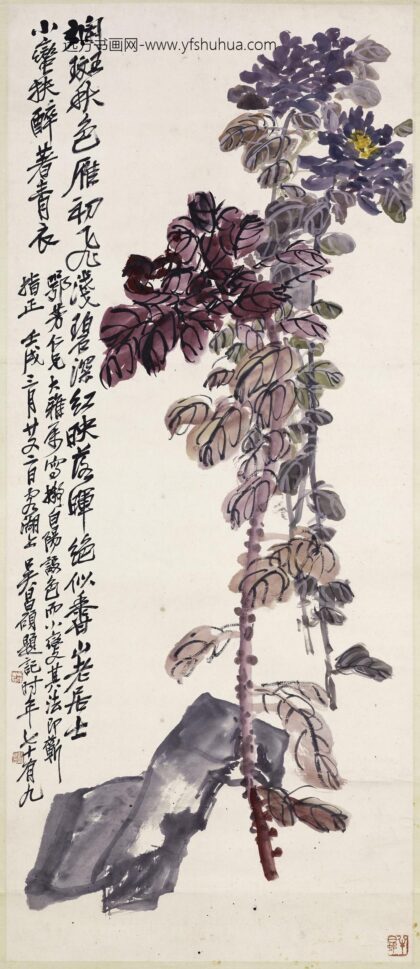 远方书画网-www.yfshuhua.com
斕斑秋色雁初飛淺碧深紅映落暉絕似香山老居士
小蠻扶醉著青衣
鄂芳仁兄大雅屬寫擬白陽設色而小變其法即蘄
指正 壬戌三月廿又二日客湖上 吳昌碩題記時年七十有九